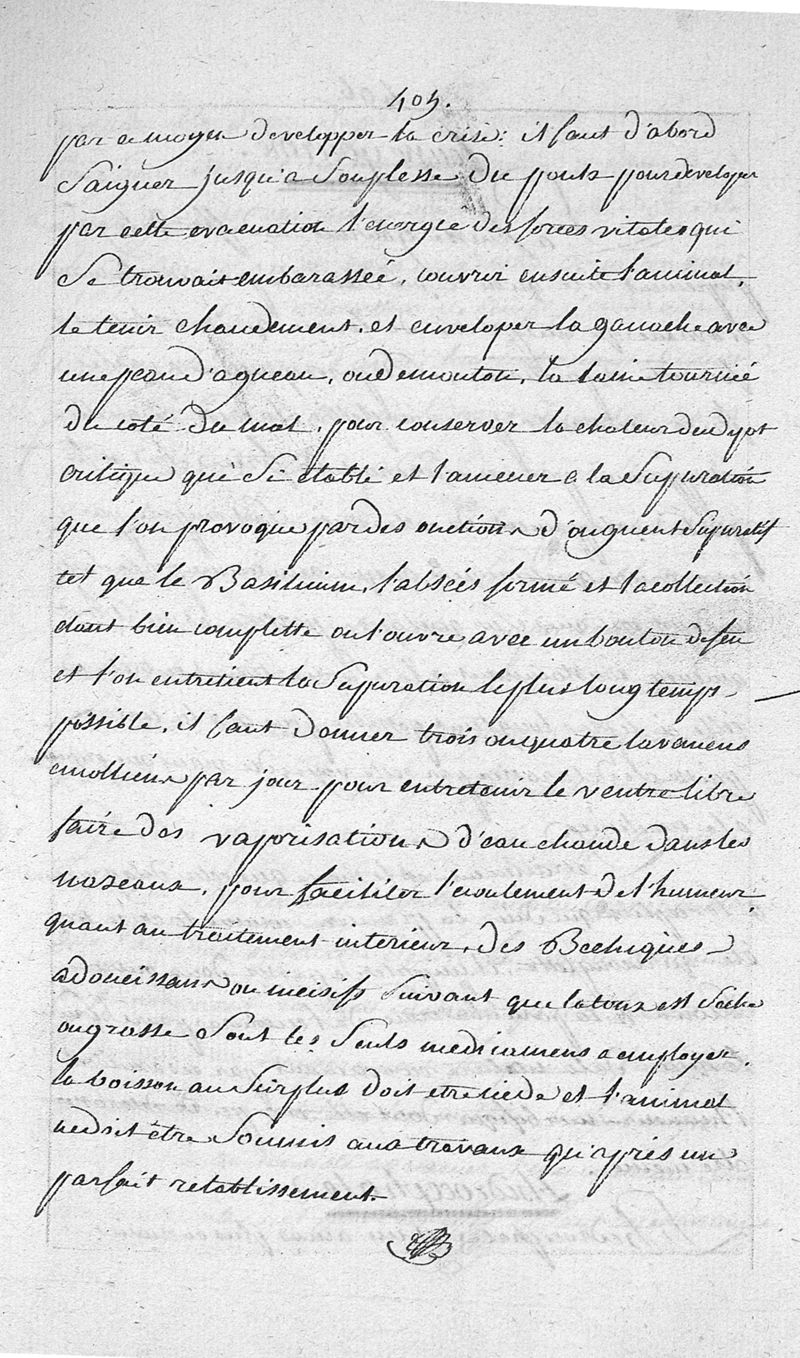 405.
par ce moyen developper la crise: il faut d'abord
Saigner jusqu'a Souplesse du pouls pour developer
par cette evacuation l'energie des forces vitales qui
Se trouvait embarassée, couvrir ensuite l'animal,
le tenir chaudement, et enveloper la ganache avec
une peau d'agneau, ou de mouton, la laine tournée
du coté du mal, pour conserver la chaleur du depot
critique qui S'i etablé et l'amener a la Supuration
que l'on provoque par des onctions d'onguent Supuratif
tel que le Basilicum, l'absées formé et la collection
etant bien complette on l'ouvre avec un bouton de feu
et l'on entretient la Supuration le plus longtemps
possible, il faut donner trois ou quatre lavemens
emolliens par jour pour entretenir le ventre libre
faire des vaporisations d'eau chaude dans les
nazeaux, pour faciliter l'ecoulement de l'humeur
quant au traitement interieur, des Bechiques
adoucissans ou incisifs Suivant que la toux est Seche
ou grasse Sont les Seuls medicamens a employer.
la boisson au Surplus doit etre tiede et l'animal
ne doit être Soumis aux travaux qu'après un
parfait retablissement